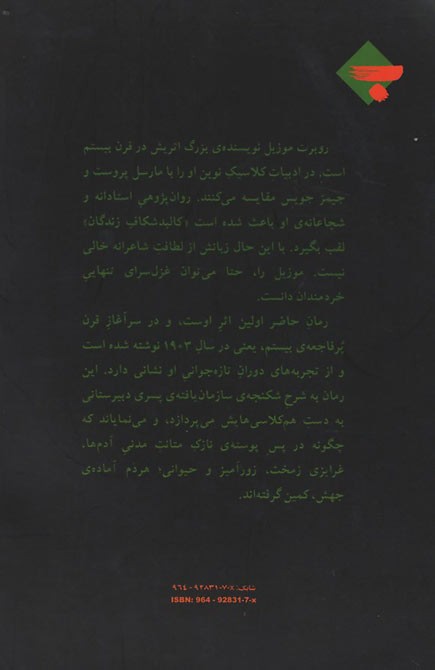 روبرت موزیل نویسنده‌ی بزرگ اتریش در قرن بیستم
است. در ادبیات کلاسیکِ نوین او را با مارسل پروست و
جیمز جویس مقایسه می‌کنند. روان‌پژوهیِ استادانه و
شجاعانه‌ی او باعث شده است «کالبدشکافِ زندگان»
لقب بگیرد. با این حال زبانش از لطافت شاعرانه خالی
نیست. موزیل را، حتا می‌توان غزل‌سرای تنهاییِ
خردمندان دانست.
رمانِ حاضر اولین اثرِ اوست، و در سرآغازِ قرنِ
پُرفاجعه‌ی بیستم، یعنی در سالِ ۱۹۰۳ نوشته شده است
و از تجربه‌های دورانِ تازه‌جوانیِ او نشانی دارد. این
رمان به شرحِ شکنجه‌ی سازمان‌یافته‌ی پسری دبیرستانی
به دستِ هم‌کلاسی‌هایش می‌پردازد، و می‌نمایاند که
چگونه در پسِ پوسته‌ی نازکِ متانتِ مدنیِ آدم‌ها،
غرایزی زمخت، زورآمیز و حیوانی؛ هردَم آماده‌ی
جهش، کمین گرفته‌اند.
شابک: x-۷-۹۲۸۳۱-۹۶۴
ISBN: 964 - 92831-7-x